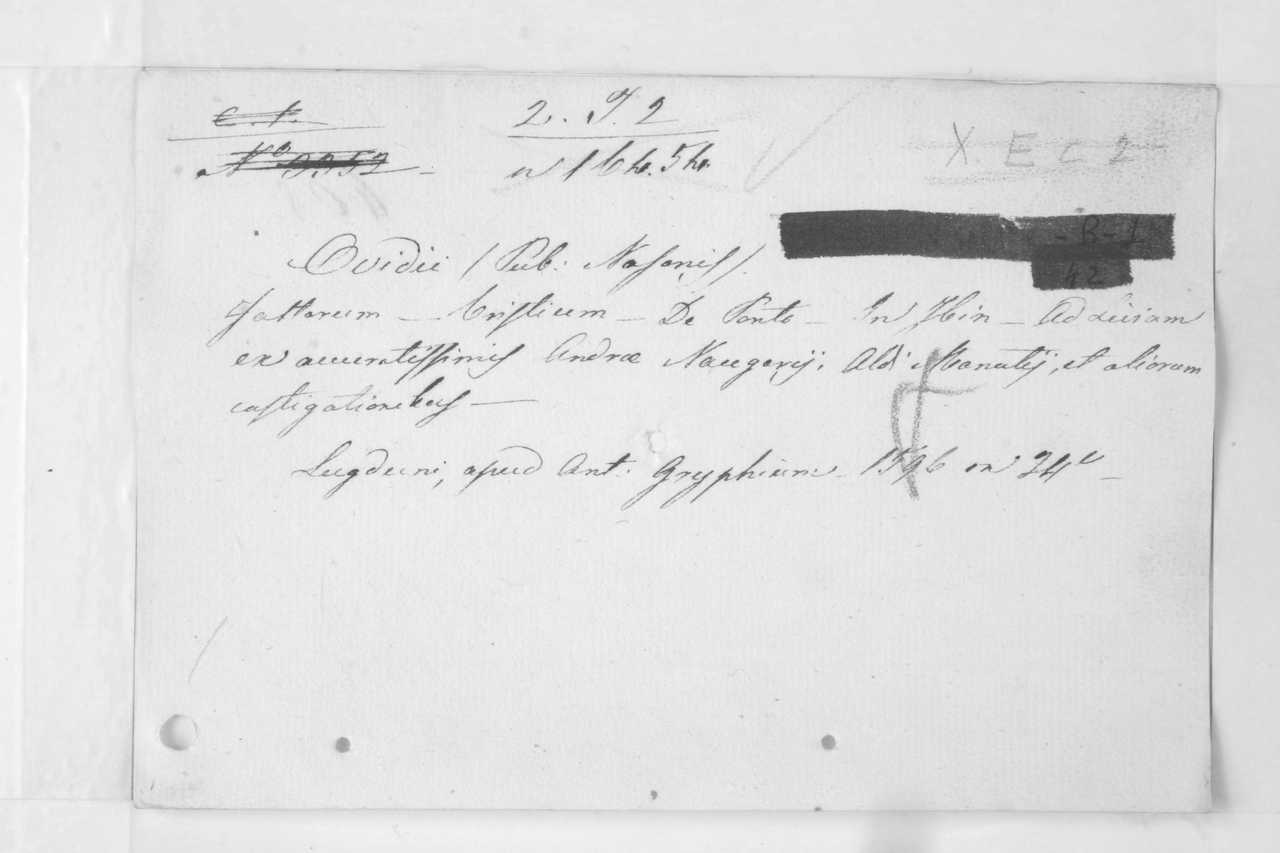 2. T. 2
X E C 2
- B - 1
42
Ovidii (Pub: Nasonis).
Fastorum — Tristium — De Ponto — In Ibin — Ad Liviam
ex accuratissimis Andreæ Naugerij, Aldi Manutij, et aliorum
castigationibus —
Lugduni, apud Ant: Gryphium 1596 in 24º —